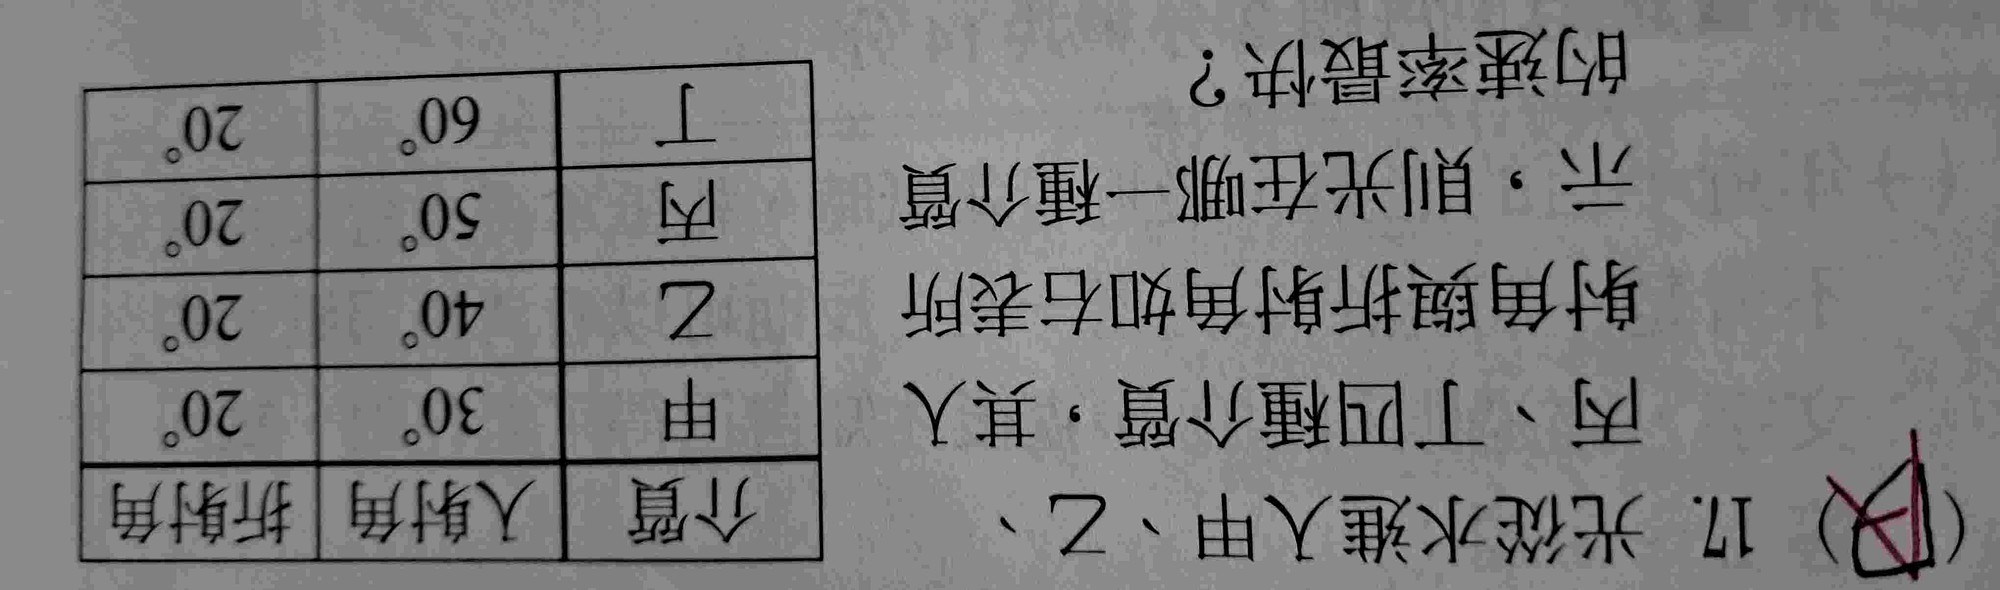 17. 光從水進入甲、乙、
丙、丁四種介質，其入
射角與折射角如右表所
示，則光在哪一種介質
的速率最快？
介質 入射角 折射角
甲 30° 20°
乙 40° 20°
丙 50° 20°
丁 60° 20°